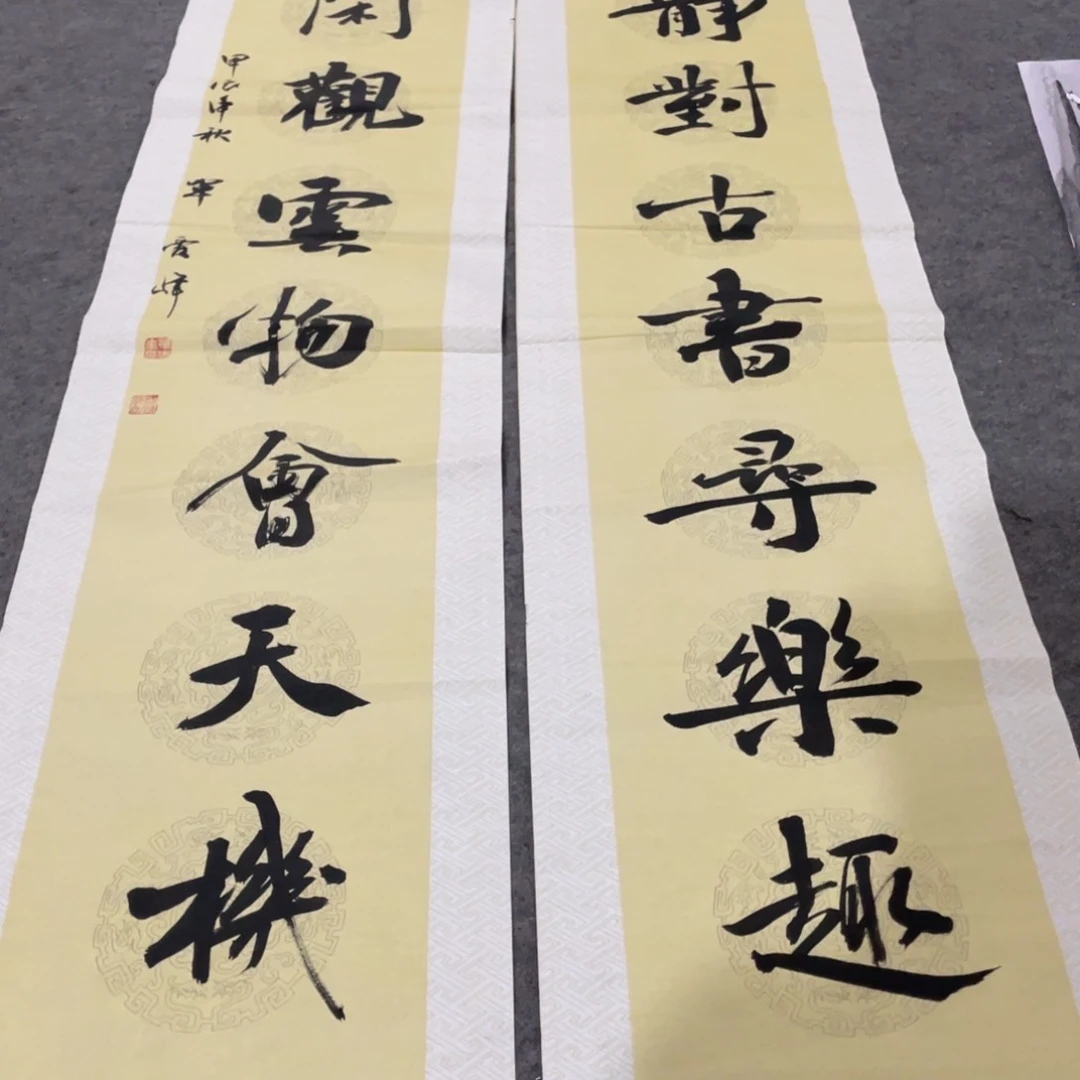 靜對古書尋樂趣
閑觀雲物會天機
甲辰
秋
雪峰